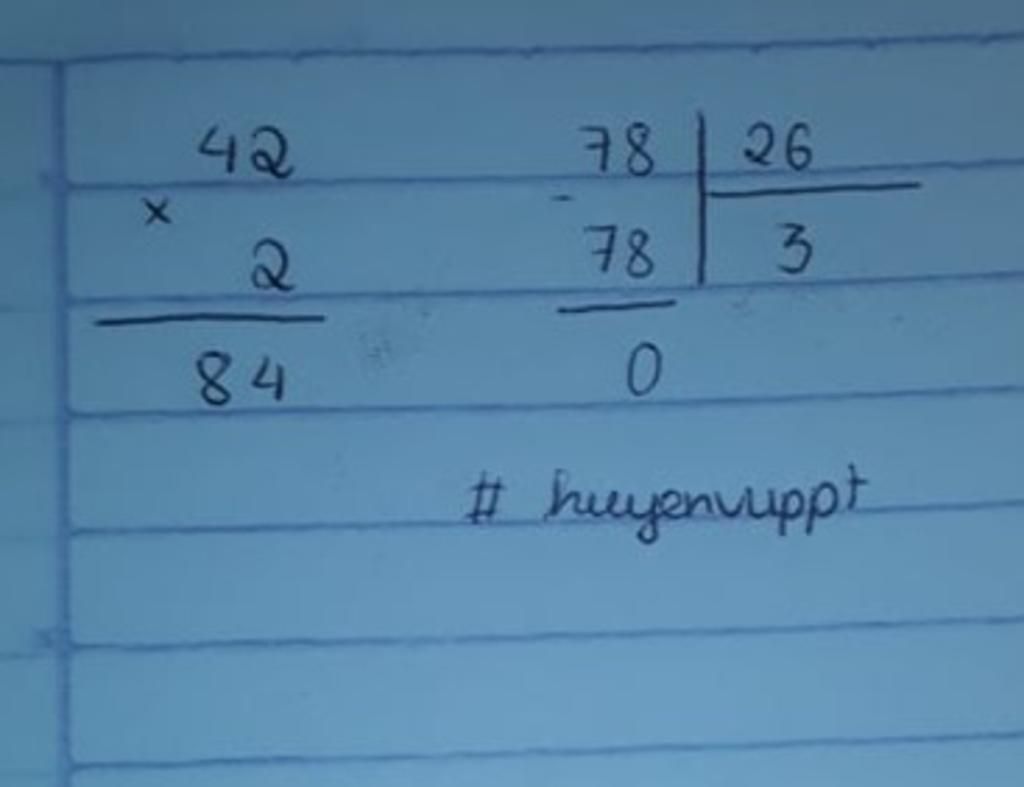 42
×
2
84
78 26
-
78 3
0
# huyenvuppt